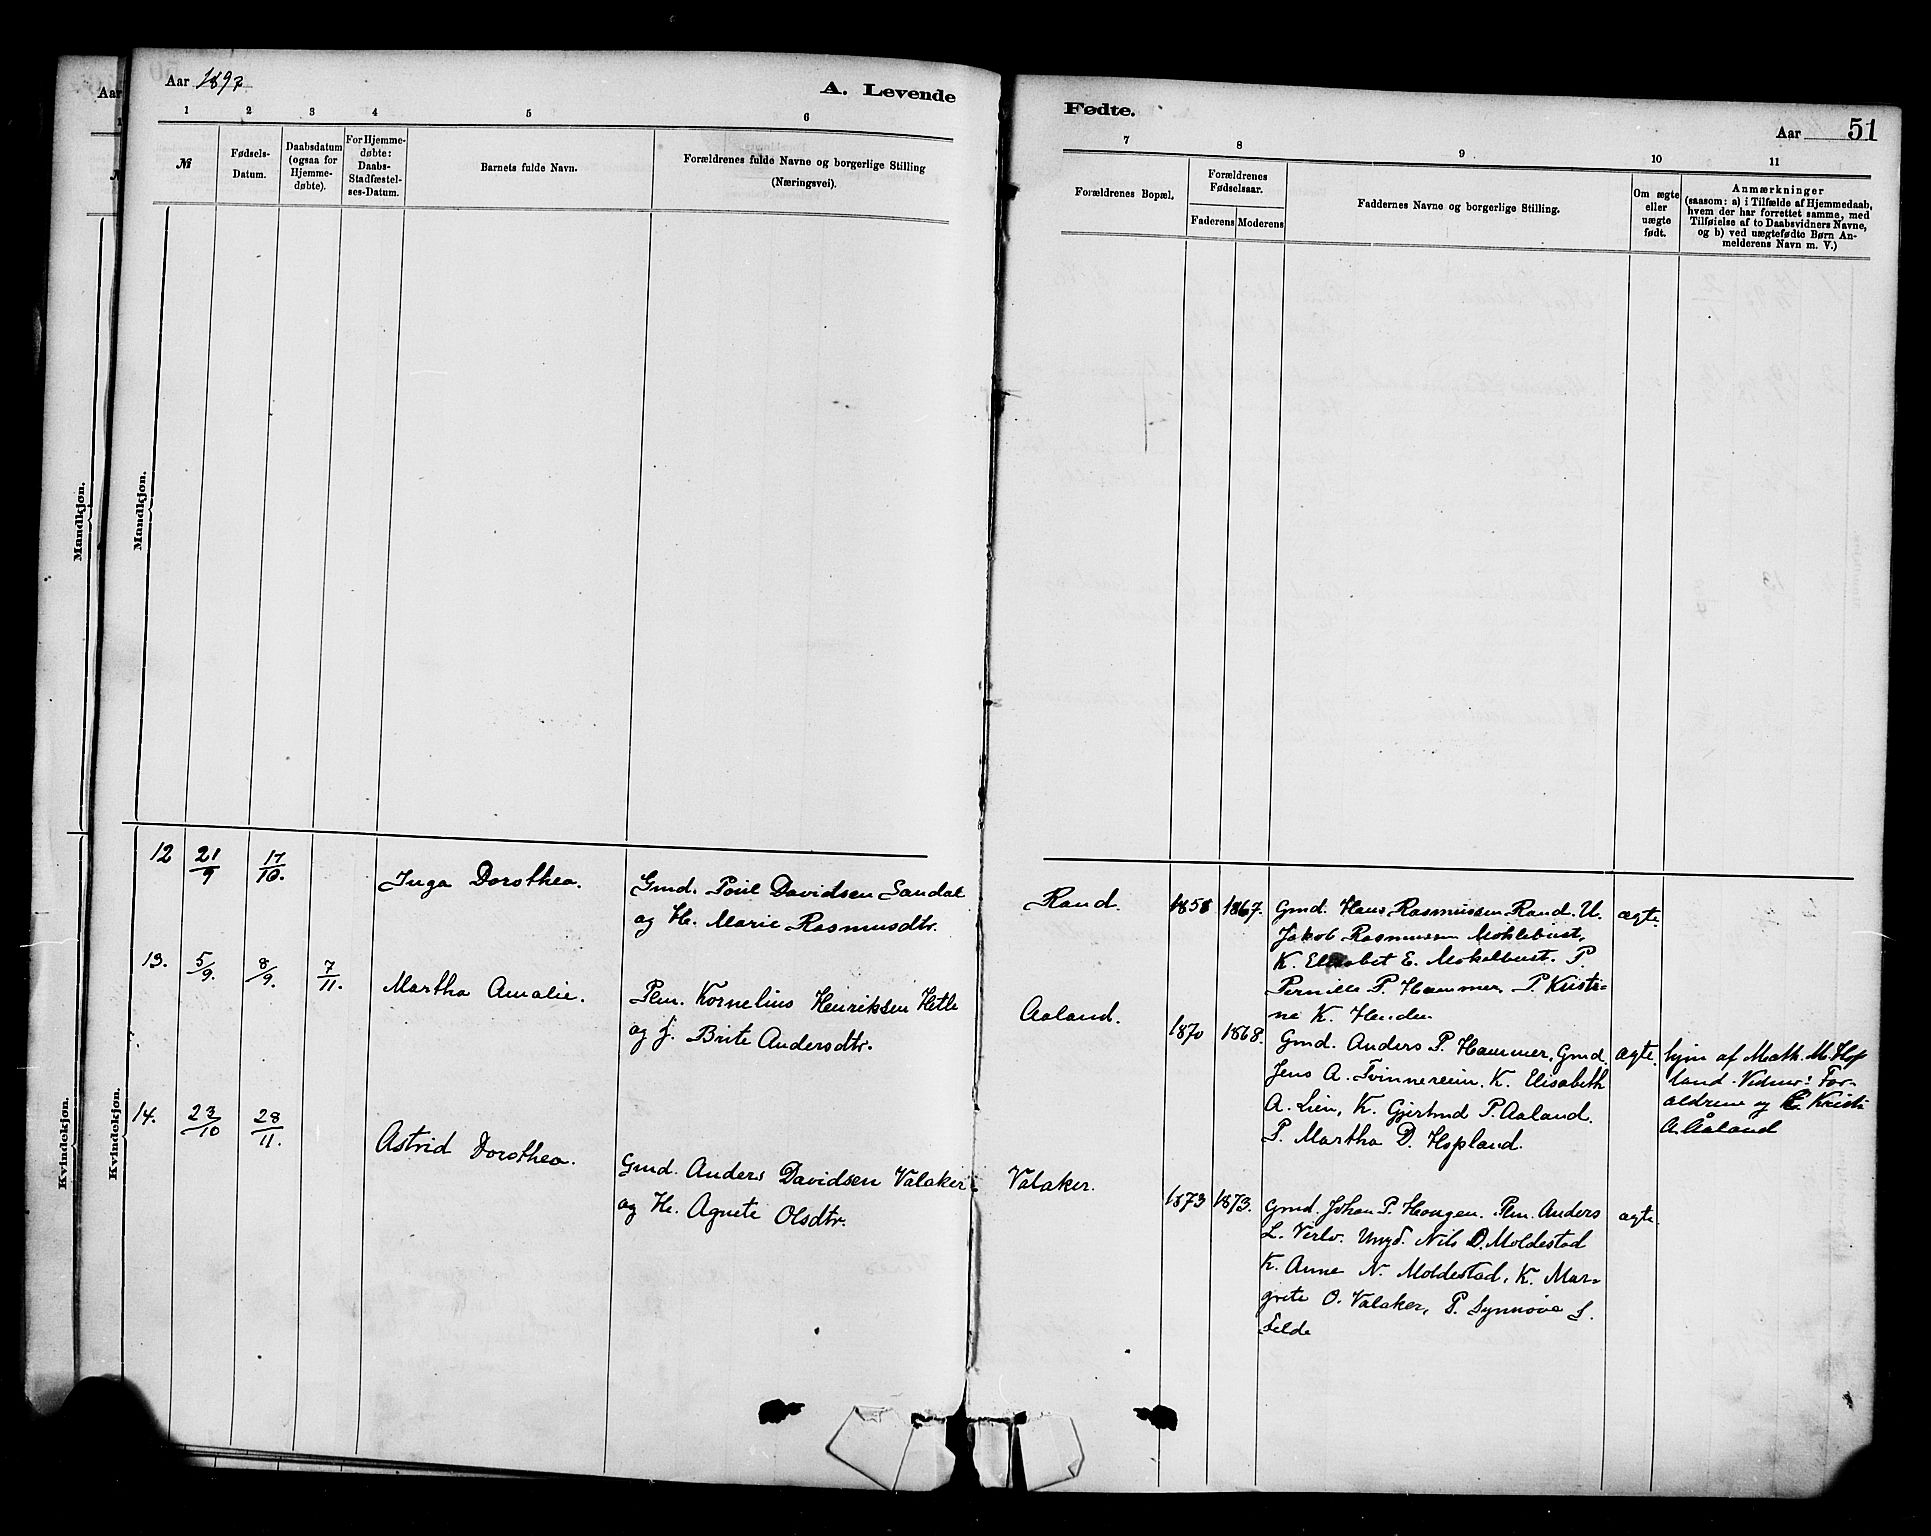 Aar 1897
A. Levende
1 2 3 4 5 6
№
Fødsels-
Datum.
Daabsdatum
(ogsaa for
Hjemme-
døbte).
For Hjemme-
døbte:
Daabs-
Stadfæstel-
ses-Datum.
Barnets fulde Navn.
Forældrenes fulde Navne og borgerlige Stilling
(Næringsvei).
Aar
Mandkjøn.
Mandkjøn.
Kvindekjøn.
Kvindekjøn.
12 21/9 17/10. Inga Dorothea.
Gmd. Poul Davidsen Sandal
og H. Marie Rasmusdtr.
13. 5/9. 8/9. 7/11. Martha Amalie.
Plm. Kornelius Henriksen Hetle
og f. Brite Andersdtr.
14. 23/10 28/11. Astrid Dorothea.
Gmd. Anders Davidsen Valaker
og H. Agnete Olsdtr.
Fødte.
Aar 51
7 8 9 10 11
Forældrenes Bopæl.
Forældrenes
Fødselsaar.
Faderens Moderens
Faddernes Navne og borgerlige Stilling.
Om ægte
eller
uægte
født.
Anmærkninger
(saasom: a) i Tilfælde af Hjemmedaab,
hvem der har forrettet samme, med
Tilføielse af to Daabsvidners Navne,
og b) ved uægtefødte Børn An-
melderens Navn m. V.)
Rand. 1867. Gmd. Hans Rasmussen Rand. U. ægte.
Jakob Rasmussen Moklebust,
K. Elisabet E. Mokelbust. P.
Pernille P. Hammer, P. Kristi-
ne K. Henden
Aaland. 1870 1868. Gmd. Anders P. Hammer, Gmd. ægte. hjm af Math. M. Hop
Jens A. Tvinnereim, K. Elisabeth land. Vidner: For-
A. Lien, K. Gjertrud P. Aaland. ældrene og Kristi
P. Martha D. Hopland. A. Åaland
Valaker. 1873 1873. Gmd. Johan P. Haugen. Plm. Anders ægte.
L. Verlo. Ungd. Nils D. Moldestad
K. Anne N. Moldestad, K. Mar-
grete O. Valaker, P. Synnøve S.
Selde